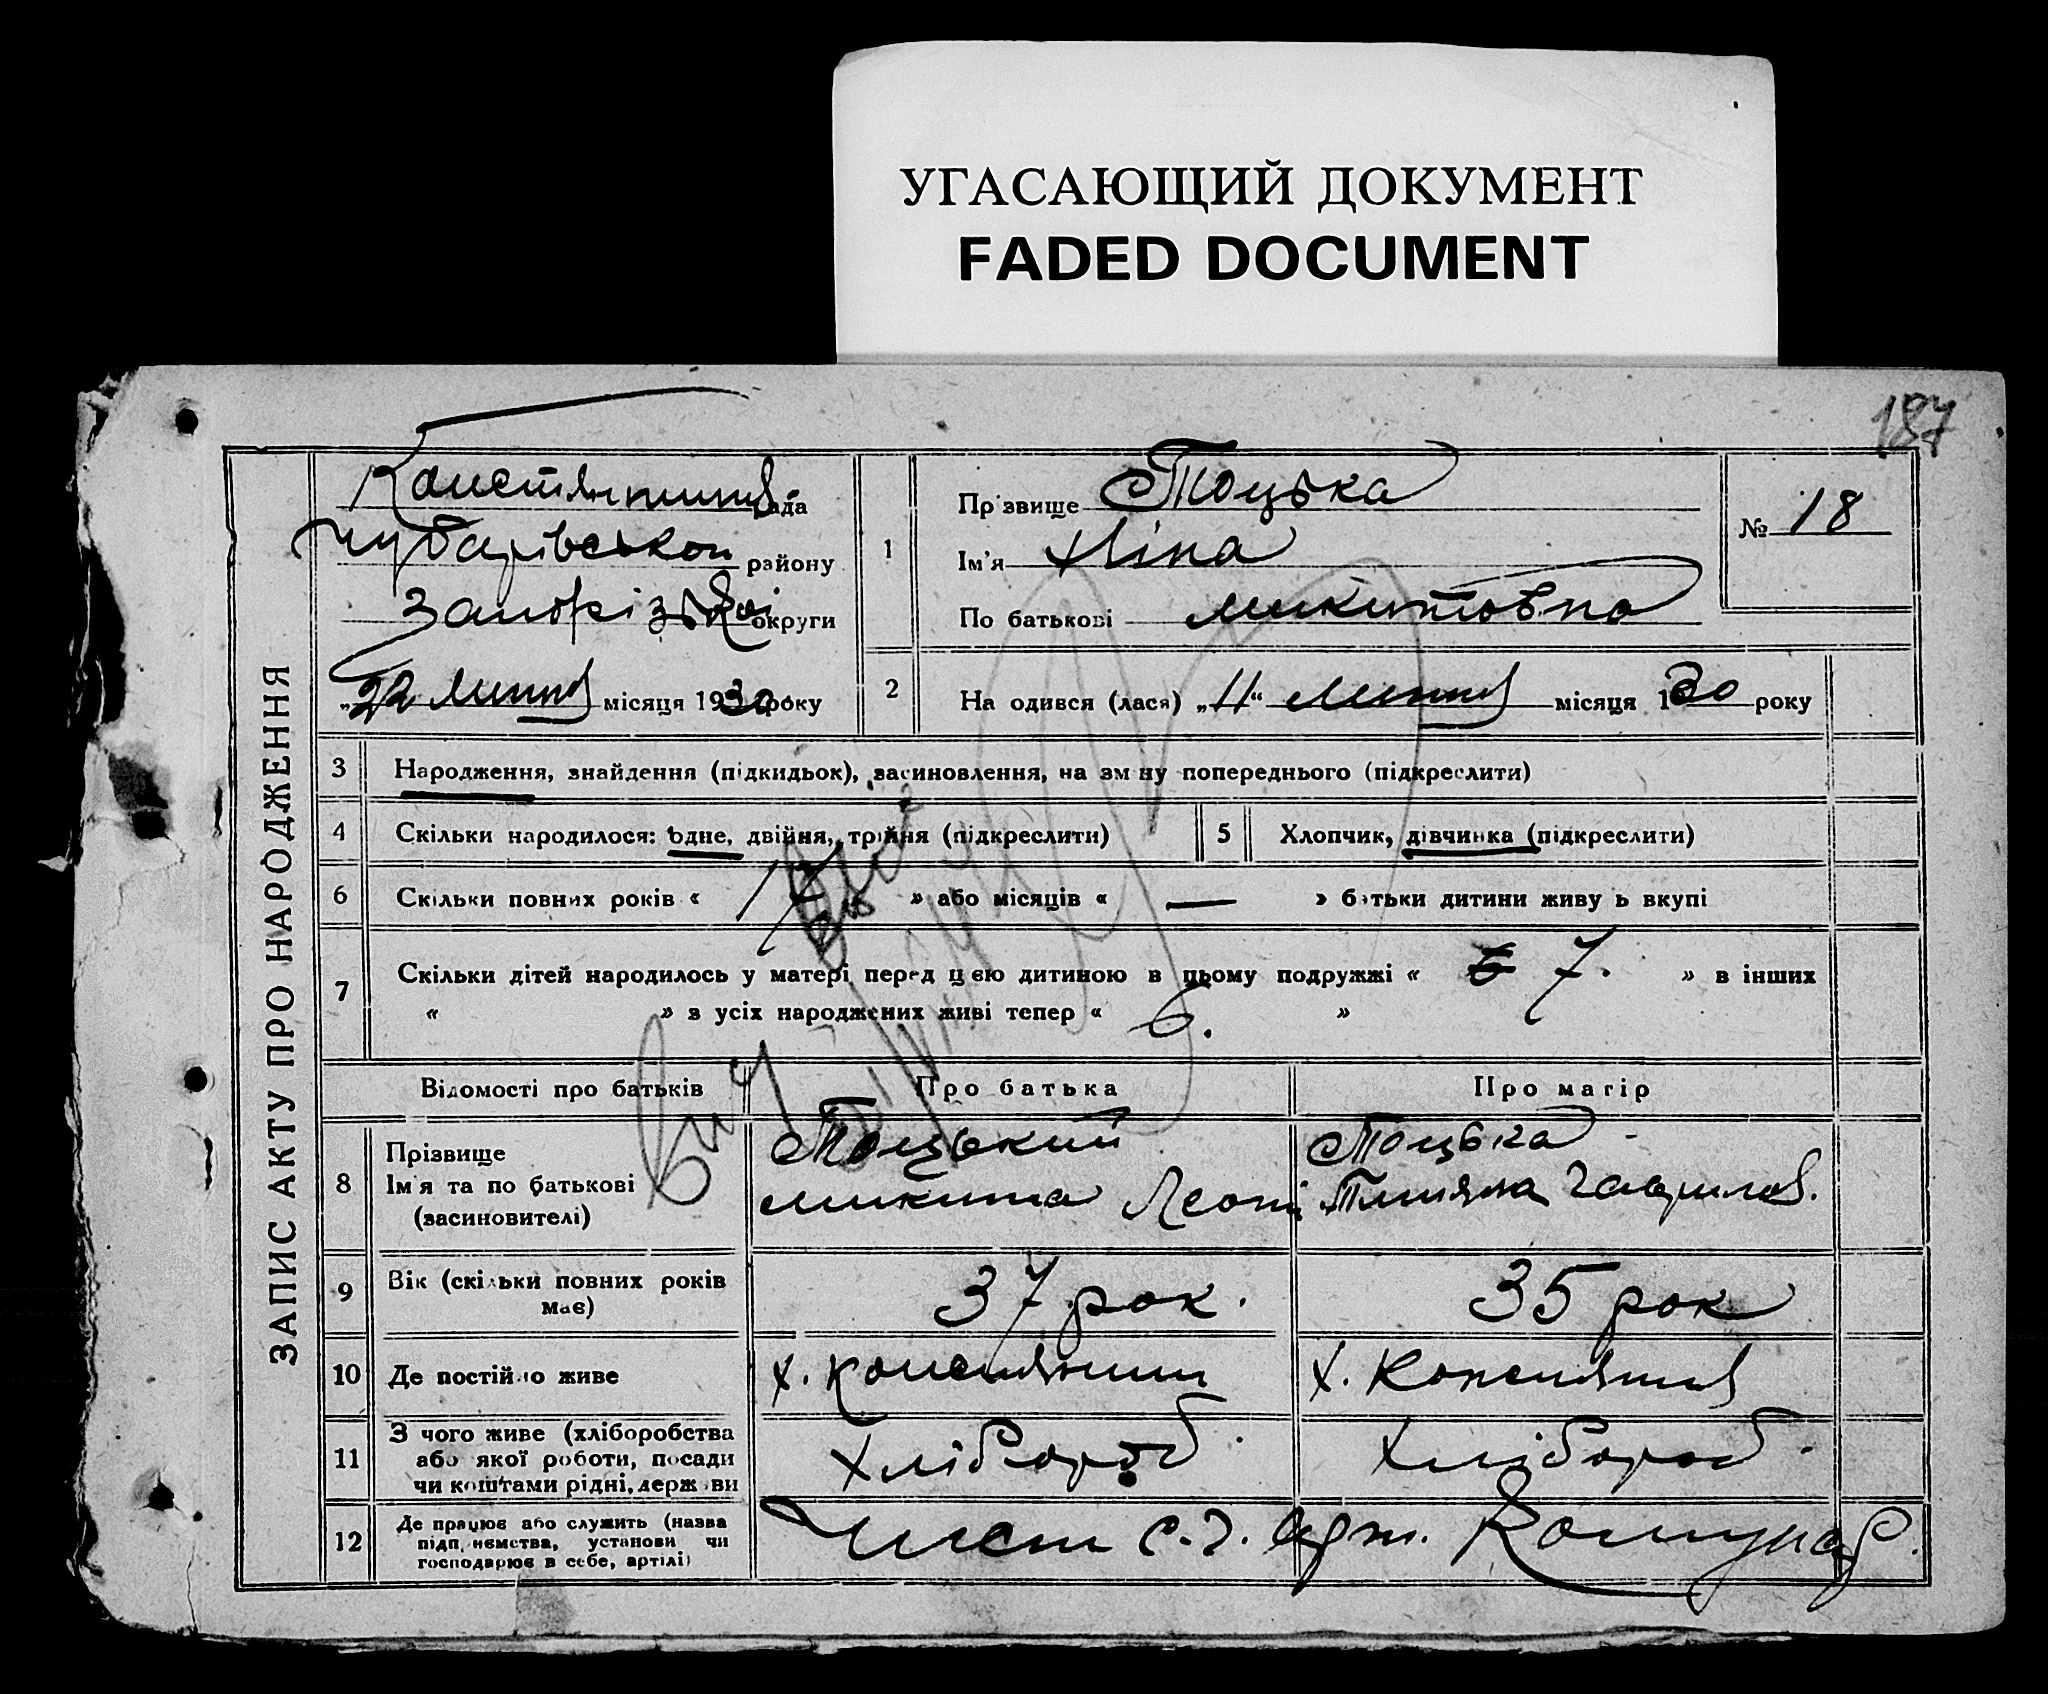 УГАСАЮЩИЙ ДОКУМЕНТ
FADED DOCUMENT
187
ЗАПИС АКТУ ПРО НАРОДЖЕННЯ
рада
Чубарівської району
Запорізької округи
„22 Липня місяця 1930 року
1
Прізвище Тоцька
Ім'я Ніна
По батькові Микитовна
№ 18
2
На одився (лася) „11“ Липня місяця 1930 року
3 Народження, знайдення (підкидьок), засиновлення, на зміну попереднього (підкреслити)
4 Скільки народилося: одне, двійня, трійня (підкреслити)
5 Хлопчик, дівчинка (підкреслити)
6 Скільки повних років « 17 » або місяців « — » батьки дитини живу ь вкупі
7 Скільки дітей народилось у матері перед цією дитиною в цьому подружжі « 7. » в інших
« » з усіх народжених живі тепер « 6. »
Відомості про батьків
Про батька
Про матір
8
Прізвище
Ім'я та по батькові
(засиновителі)
Тоцький
Микита
Тоцька
9
Вік (скільки повних років
має)
37 рок.
35 рок
10 Де постійно живе
х.
х.
11
З чого живе (хліборобства
або якої роботи, посади
чи коштами рідні, держави
Хлібороб
Хлібороб.
12
Де працює або служить (назва
підприємства, установи чи
господарює в себе, артілі)
Член с.г. арт. Комунар.